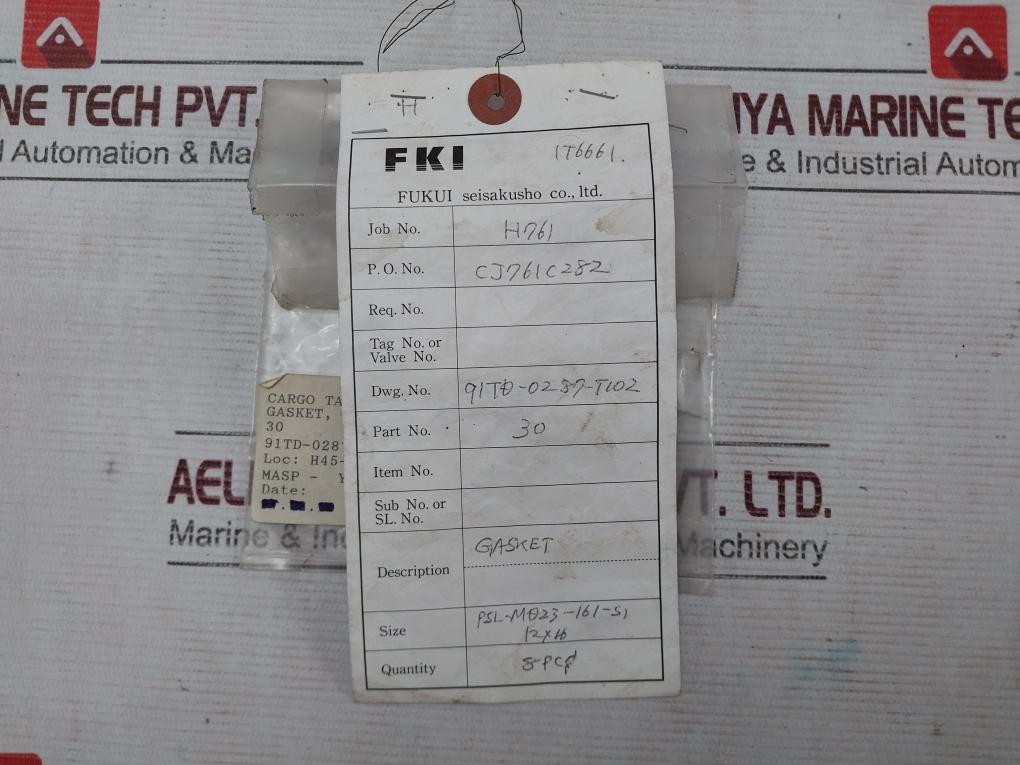 NE TECH PVT.
l Automation & Ma
IYA MARINE TE
e & Industrial Autom
H
FKI
1T6661.
FUKUI seisakusho co., ltd.
Job No. H761
P.O. No. CJ761C282
Req. No.
Tag No. or
Valve No.
Dwg. No. 91TD-0287-T102
Part No. 30
Item No.
Sub No. or
SL. No.
Description GASKET
Size PSL-M023-161-S1
12x16
Quantity 8 pcs
CARGO TA
GASKET,
30
91TD-028
Loc: H45-
MASP - Y
Date:
AEL
VT. LTD.
Marine & In
Machinery